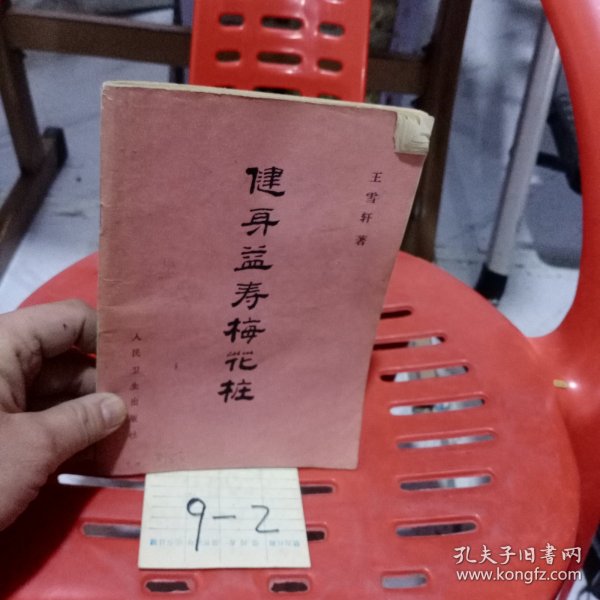 王雪轩 著
健身益寿梅花桩
人民卫生出版社
9-2
孔夫子旧书网
www.kongfz.com